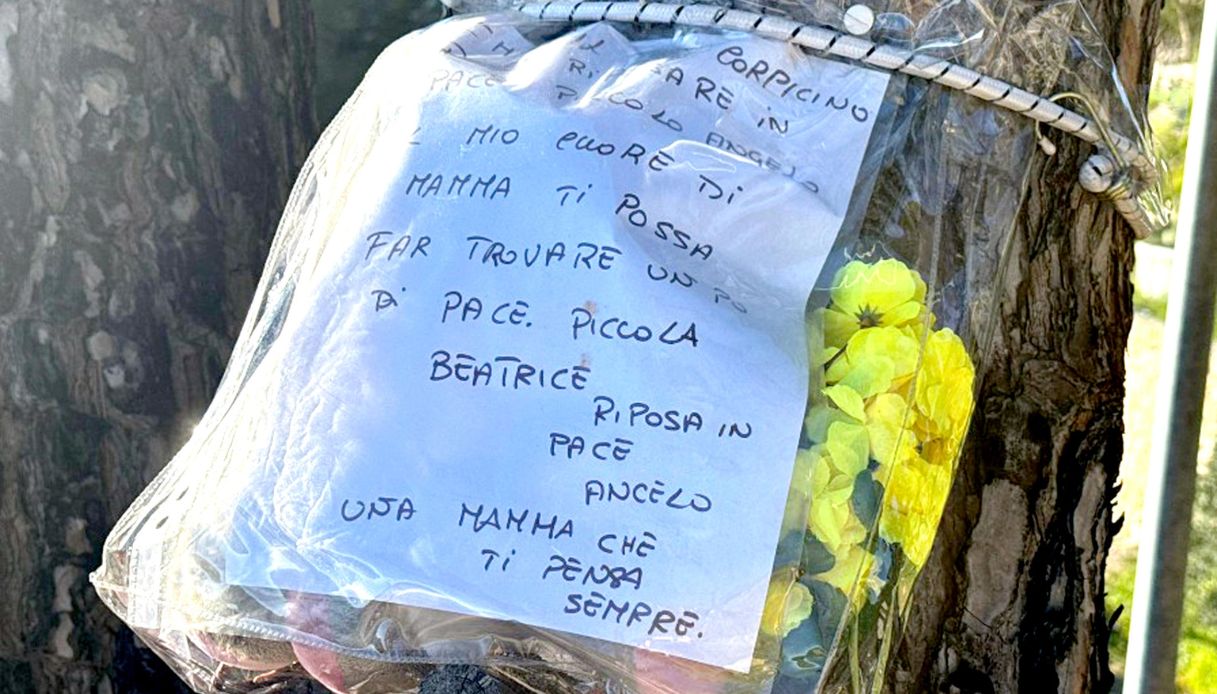 CORPICINO
RIPOSARE IN
PACE PICCOLO ANGELO
IL MIO CUORE DI
MAMMA TI POSSA
FAR TROVARE UN PO
DI PACE. PICCOLA
BEATRICE
RIPOSA IN
PACE
ANGELO
UNA MAMMA CHE
TI PENSA
SEMPRE.